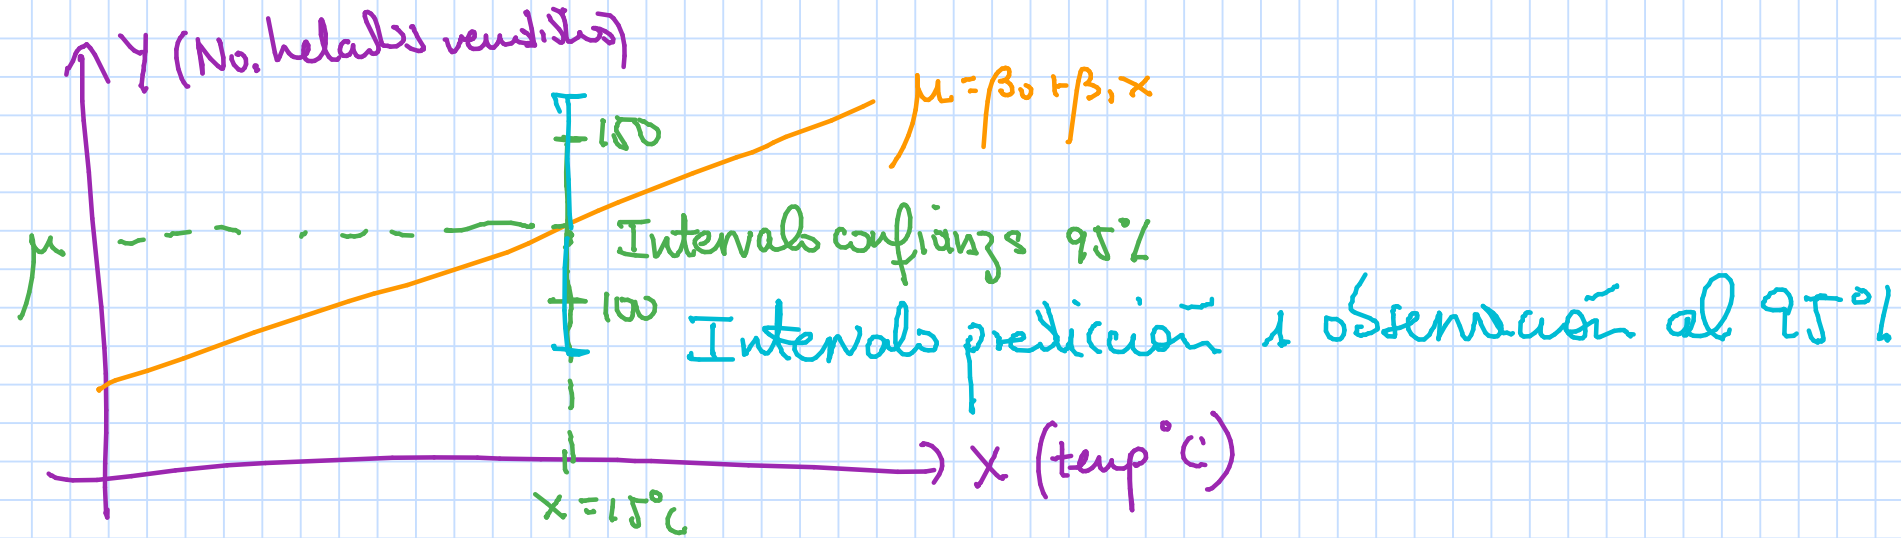 Y (No. helados vendidos)
μ = β₀ + β₁ x
150
μ
Intervalo confianza 95%
100
Intervalo predicción 1 observación al 95%
X (temp °C)
x = 15°C